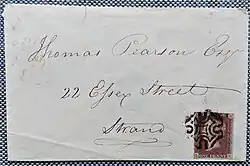 Thomas Pearson Esq
22 Essex Street
Strand